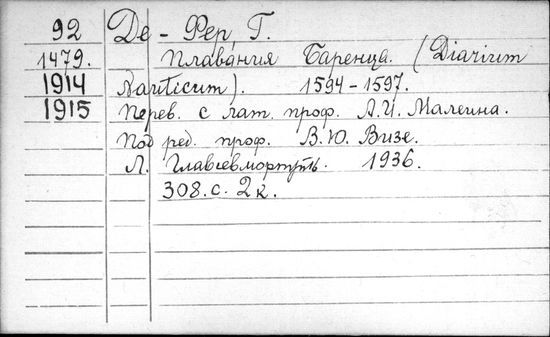 92 Де-Фер Г.
1479. Плавания Баренца. (Diarium
1914 Nauticum). 1594-1597.
1915 Перев. с лат. проф. А.И. Малеина.
Под ред. проф. В.Ю. Визе.
Л. Главсевморпуть. 1936.
308.с. 2к.